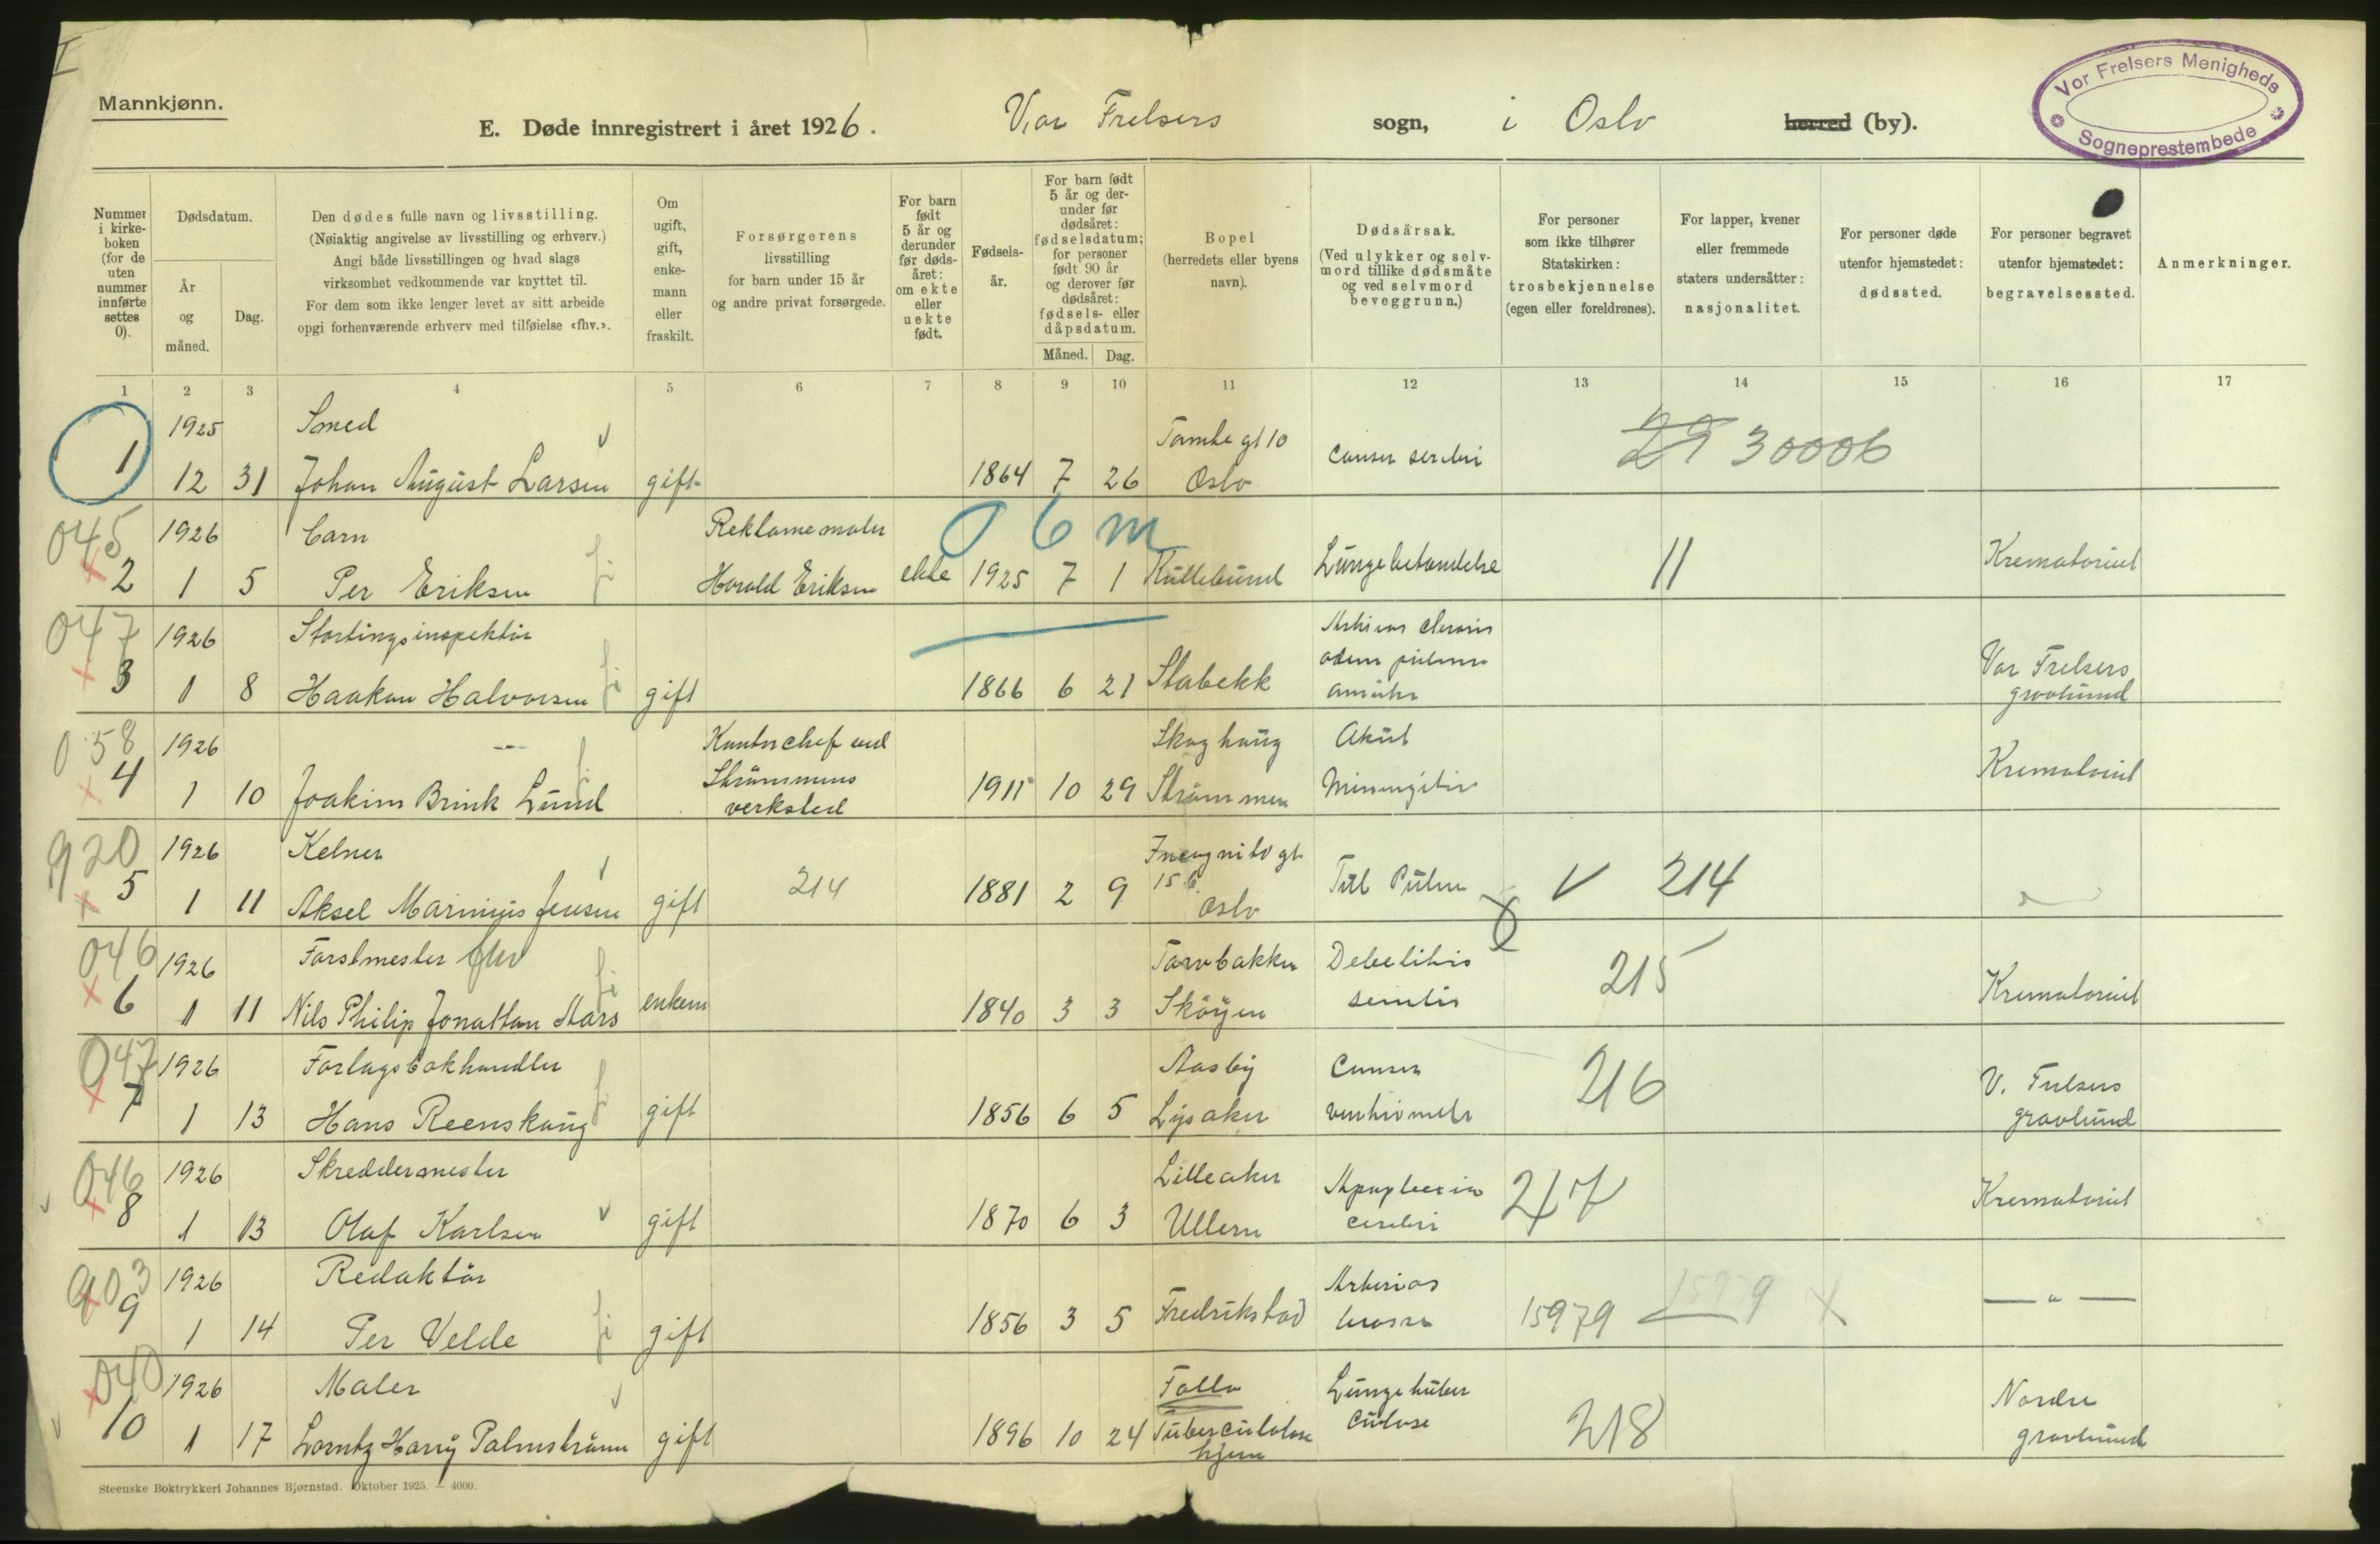 I
Mannkjønn.
E. Døde innregistrert i året 1926.
Vor Frelsers sogn, i Oslo herred (by).
Vor Frelsers Menigheds
Sogneprestembede
Nummer i kirkeboken (for de uten nummer innførte settes 0).
Dødsdatum.
År og måned.
Dag.
Den dødes fulle navn og livsstilling.
(Nøiaktig angivelse av livsstilling og erhverv.)
Angi både livsstillingen og hvad slags
virksomhet vedkommende var knyttet til.
For dem som ikke lenger levet av sitt arbeide
opgi forhenværende erhverv med tilføielse «fhv.».
Om ugift, gift, enkemann eller fraskilt.
Forsørgerens
livsstilling
for barn under 15 år
og andre privat forsørgede.
For barn født 5 år og derunder før dødsåret: om ekte eller uekte født.
Fødselsår.
For barn født 5 år og derunder før dødsåret: fødselsdatum; for personer født 90 år og derover før dødsåret: fødsels- eller dåpsdatum.
Måned. Dag.
Bopel
(herredets eller byens
navn).
Dødsårsak.
(Ved ulykker og selvmord tillike dødsmåte og ved selvmord beveggrunn.)
For personer
som ikke tilhører
Statskirken:
trosbekjennelse
(egen eller foreldrenes).
For lapper, kvener
eller fremmede
staters undersåtter:
nasjonalitet.
For personer døde
utenfor hjemstedet:
dødssted.
For personer begravet
utenfor hjemstedet:
begravelsessted.
Anmerkninger.
1 2 3 4 5 6 7 8 9 10 11 12 13 14 15 16 17
1925 Smed gt 10
1 12 31 Johan August Larsen gift 1864 7 26 Oslo Cancer cerebri 29 30006
045 1926 barn Reklamemaler 06 m
2 1 5 Per Eriksen Harald Eriksen ekte 1925 7 1 Lungebetændelse 11 Krematoriet
047 1926 Stortingsinspektør
3 1 8 Haakon Halvorsen gift 1866 6 21 Stabekk Vor Frelsers
gravlund
058 1926 — Kontorchef ved Skoghaug Akut
4 1 10 Joakim Brink Lund Strømmens 1911 10 29 Strømmen Meningitis Krematoriet
verksted
920 1926 Kelner Incognito gt
5 1 11 Aksel Marinius Jensen gift 214 1881 2 9 15 b Oslo Tub Pulm V 214
046 1926 Forstmester fhv Debelitis
6 1 11 Nils Philip Jonathan Aars enkem 1840 3 3 Skøyen senilis 215 Krematoriet
047 1926 Forlagsbokhandler Aasby Cancer
7 1 13 Hans Reenskaug gift 1856 6 5 Lysaker ventriculi 216 V. Frelsers
gravlund
046 1926 Skreddermester Lilleaker Apoplecxia
8 1 13 Olaf Karlsen gift 1870 6 3 Ullern cerebri 217 Krematoriet
903 1926 Redaktør
9 1 14 Per Velde gift 1856 3 5 Fredrikstad 15979 15979 — " —
040 1926 Maler Follo Lungetuber
10 1 17 Lorntz Harry Palmstrøm gift 1896 10 24 Tuberculose culose 218 Nordre
hjem gravlund
Steenske Boktrykkeri Johannes Bjørnstad. Oktober 1925. — 4000.